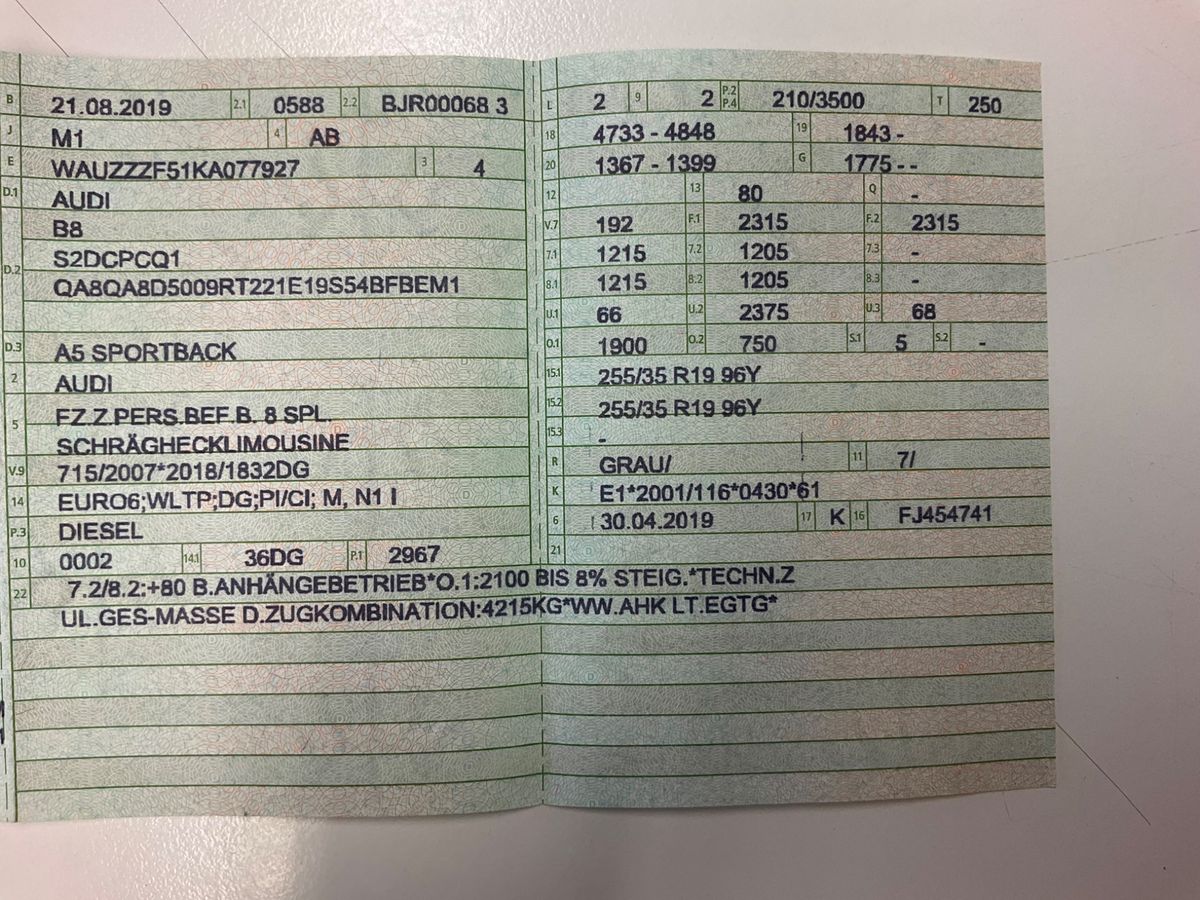 B 21.08.2019 2.1 0588 2.2 BJR00068 3
J M1 4 AB
E WAUZZZF51KA077927 3 4
D.1 AUDI
B8
D.2 S2DCPCQ1
QA8QA8D5009RT221E19S54BFBEM1
D.3 A5 SPORTBACK
2 AUDI
5 FZ.Z.PERS.BEF.B. 8 SPL.
SCHRÄGHECKLIMOUSINE
V.9 715/2007*2018/1832DG
14 EURO6;WLTP;DG;PI/CI; M, N1 I
P.3 DIESEL
10 0002 14.1 36DG P.1 2967
L 2 9 2 P.2 P.4 210/3500 T 250
18 4733 - 4848 19 1843 -
20 1367 - 1399 G 1775 - -
12 13 80 Q -
V.7 192 F.1 2315 F.2 2315
7.1 1215 7.2 1205 7.3 -
8.1 1215 8.2 1205 8.3 -
U.1 66 U.2 2375 U.3 68
O.1 1900 O.2 750 S.1 5 S.2 -
15.1 255/35 R19 96Y
15.2 255/35 R19 96Y
15.3 -
R GRAU/ 11 7/
K E1*2001/116*0430*61
6 30.04.2019 17 K 16 FJ454741
21
22 7.2/8.2:+80 B.ANHÄNGEBETRIEB*O.1:2100 BIS 8% STEIG.*TECHN.Z
UL.GES-MASSE D.ZUGKOMBINATION:4215KG*WW.AHK LT.EGTG*